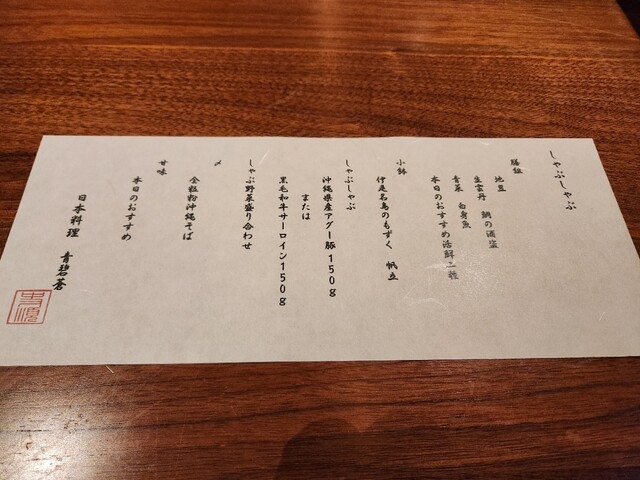 しゃぶしゃぶ
膳組
地豆
生雲丹 鯛の酒盗
青菜 白身魚
本日のおすすめ活鮮二種
小鉢
伊是名島のもずく 帆立
しゃぶしゃぶ
沖縄県産アグー豚150g
または
黒毛和牛サーロイン150g
しゃぶ野菜盛り合わせ
〆
全粒粉沖縄そば
甘味
本日のおすすめ
日本料理 青碧蒼